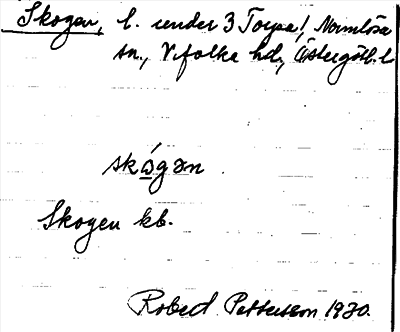 Skogen, l. under 3 Torpa!, Normlösa
sn., Vifolka hd, Östergötl. l
skógən
Skogen kb.
Robert Pettersson 1930.